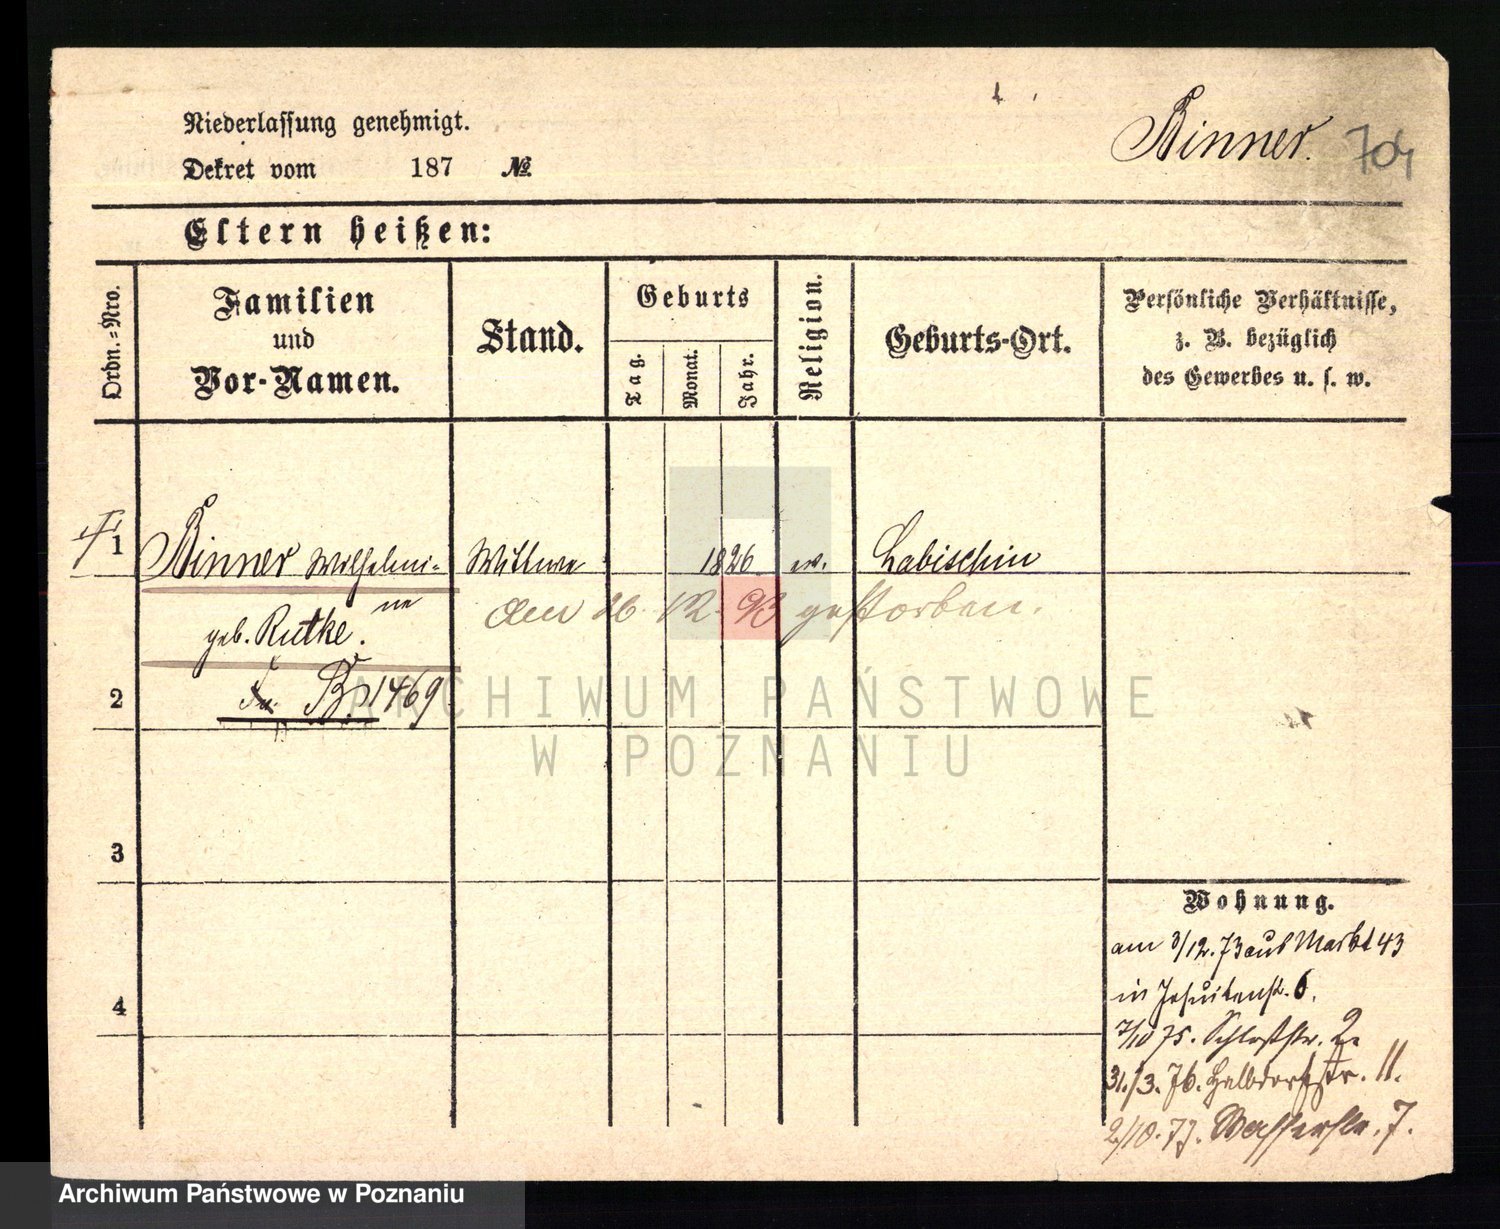 Niederlassung genehmigt.
Binner. 704
Dekret vom 187 №
Eltern heißen:
Ordn.-Nro.
Familien und Vor-Namen.
Stand.
Geburts
Tag.
Monat.
Jahr.
Religion.
Geburts-Ort.
Persönliche Verhältnisse,
z. B. bezüglich
des Gewerbes u. s. w.
1 Binner Wilhelmi- Wittwe 1826 ev. Labischin
ne
am 26. 12. 93 gestorben.
geb. Rutke.
2 B. 1469
ARCHIWUM PAŃSTWOWE
W POZNANIU
3
Wohnung.
am 3/12. 73 aus Markt 43
in Jesuitenstr. 6.
4
7/10 75. Schloßstr. 2.
31./3. 76. Halbdorfstr. 11.
2/10. 77. Wasserstr. 7.
Archiwum Państwowe w Poznaniu